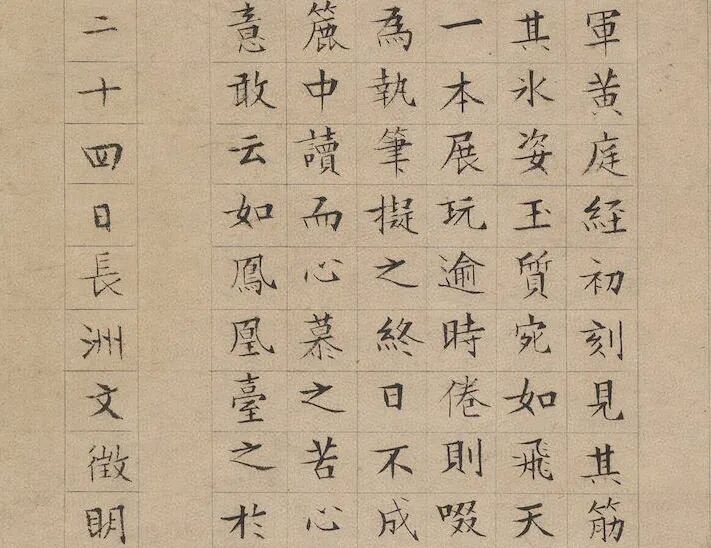 軍黄庭経初刻見其筋
其氷姿玉質宛如飛天
一本展玩逾時倦則啜
為執筆提之終日不成
簏中讀而心慕之苦心
意敢云如鳳凰臺之於
二十四日長洲文徴明